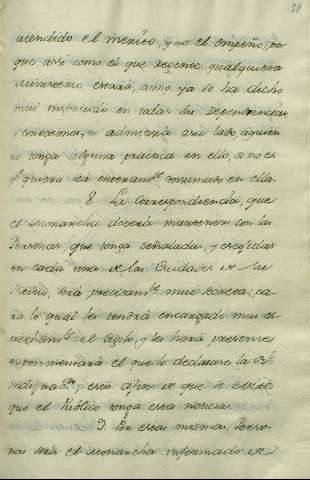 atendido el merito, y no el empeño, pa
que asi como el que regente qualquiera
Ministerio estará, como ya se ha dicho
mui instruido en todas sus dependencias
y concerna, no admitiria a su lado aquien
no tenga alguna practica en ello, si no es
q.e quiera sea enteram.te consumado en ella.
8. La Correspondencia, que
el Monarcha deverá mantener con las
Personas que tenga señaladas, y escogidas
en cada una de las Ciudades de su
Reino, será precisam.te mui secreta, pa
ra lo qual les tendrá encargado mui es
trecham.te el sigilo, y les hará presente
experimentará el que lo declarase la R.l
indignac.on, y esto afin de que se evite
que el Publico tenga esta noticia.
9. Por estas mismas Perso
nas será el Monarcha informado de